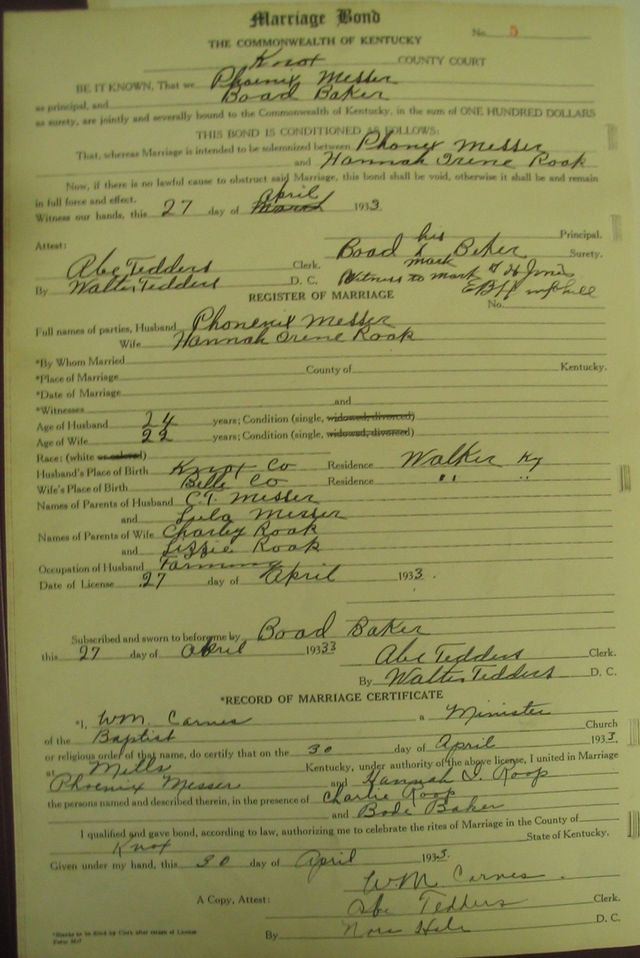 Marriage Bond
No. 5
THE COMMONWEALTH OF KENTUCKY
Knox COUNTY COURT
BE IT KNOWN, That we Phoenix Messer
as principal, and Boad Baker
as surety, are jointly and severally bound to the Commonwealth of Kentucky, in the sum of ONE HUNDRED DOLLARS
THIS BOND IS CONDITIONED AS FOLLOWS:
That, whereas Marriage is intended to be solemnized between Phonex Messer
and Hannah Irene Roak
Now, if there is no lawful cause to obstruct said Marriage, this bond shall be void, otherwise it shall be and remain
in full force and effect.
April
Witness our hands, this 27 day of March 1933
Principal.
his
Attest: Boad x Beker Surety.
mark
Abe Tedders Clerk. Witness to mark
By Walter Tedders D. C.
REGISTER OF MARRIAGE
No.
Full names of parties, Husband Phonenix Messer
Wife Hannah Irene Roak
*By Whom Married
*Place of Marriage County of Kentucky.
*Date of Marriage
*Witnesses and
Age of Husband 24 years; Condition (single, widowed, divorced)
Age of Wife 22 years; Condition (single, widowed, divorced)
Race: (white or colored)
Husband's Place of Birth Knox Co Residence Walker Ky
Wife's Place of Birth Belle Co Residence " "
Names of Parents of Husband C.T. Messer
and Lula Messer
Names of Parents of Wife Charley Roak
and Lizzie Roak
Occupation of Husband Farming
Date of License 27 day of April 1933.
Subscribed and sworn to before me by Boad Baker
this 27 day of April 1933
Abe Tedders Clerk.
By Walter Tedders D. C.
*RECORD OF MARRIAGE CERTIFICATE
*I, WM. Carnes a Minister
of the Baptist Church
or religious order of that name, do certify that on the 30 day of April 1933
at Mills Kentucky, under authority of the above license, I united in Marriage
Phoenix Messer and Hannah I. Roop
the persons named and described therein, in the presence of Charlie Roop
and Bode Baker
I qualified and gave bond, according to law, authorizing me to celebrate the rites of Marriage in the County of
Knox State of Kentucky.
Given under my hand, this 30 day of April 1933.
W.M. Carnes.
A Copy, Attest: Abe Tedders Clerk.
By D. C.
*Blanks to be filled by Clerk after return of License